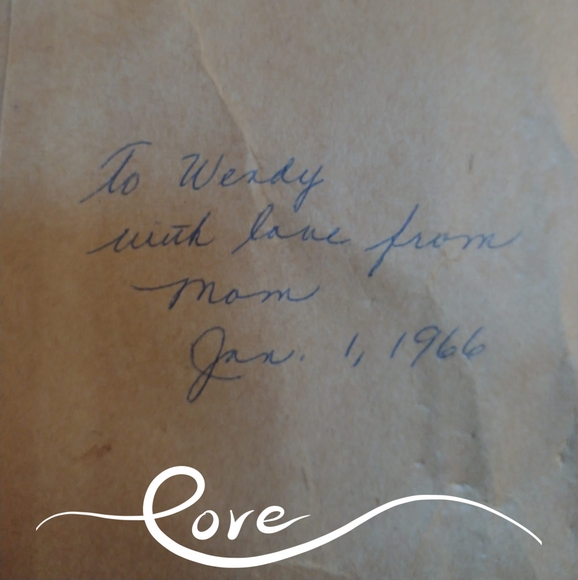 To Wendy
with love from
Mom
Jan. 1, 1966
Love